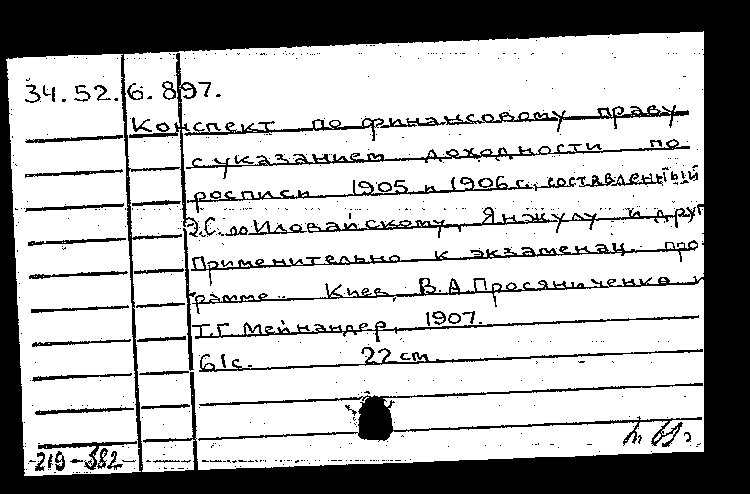 34.52.6.897.
Конспект по финансовому праву
с указанием доходности по
росписи 1905 и 1906 г., составленный
Э.С. по Иловайскому, Янжулу и друг
Применительно к экзаменац. про-
грамме. Киев, В.А. Просяниченко и
Т.Г. Мейнандер, 1907.
61с. 22 cm.
219-382